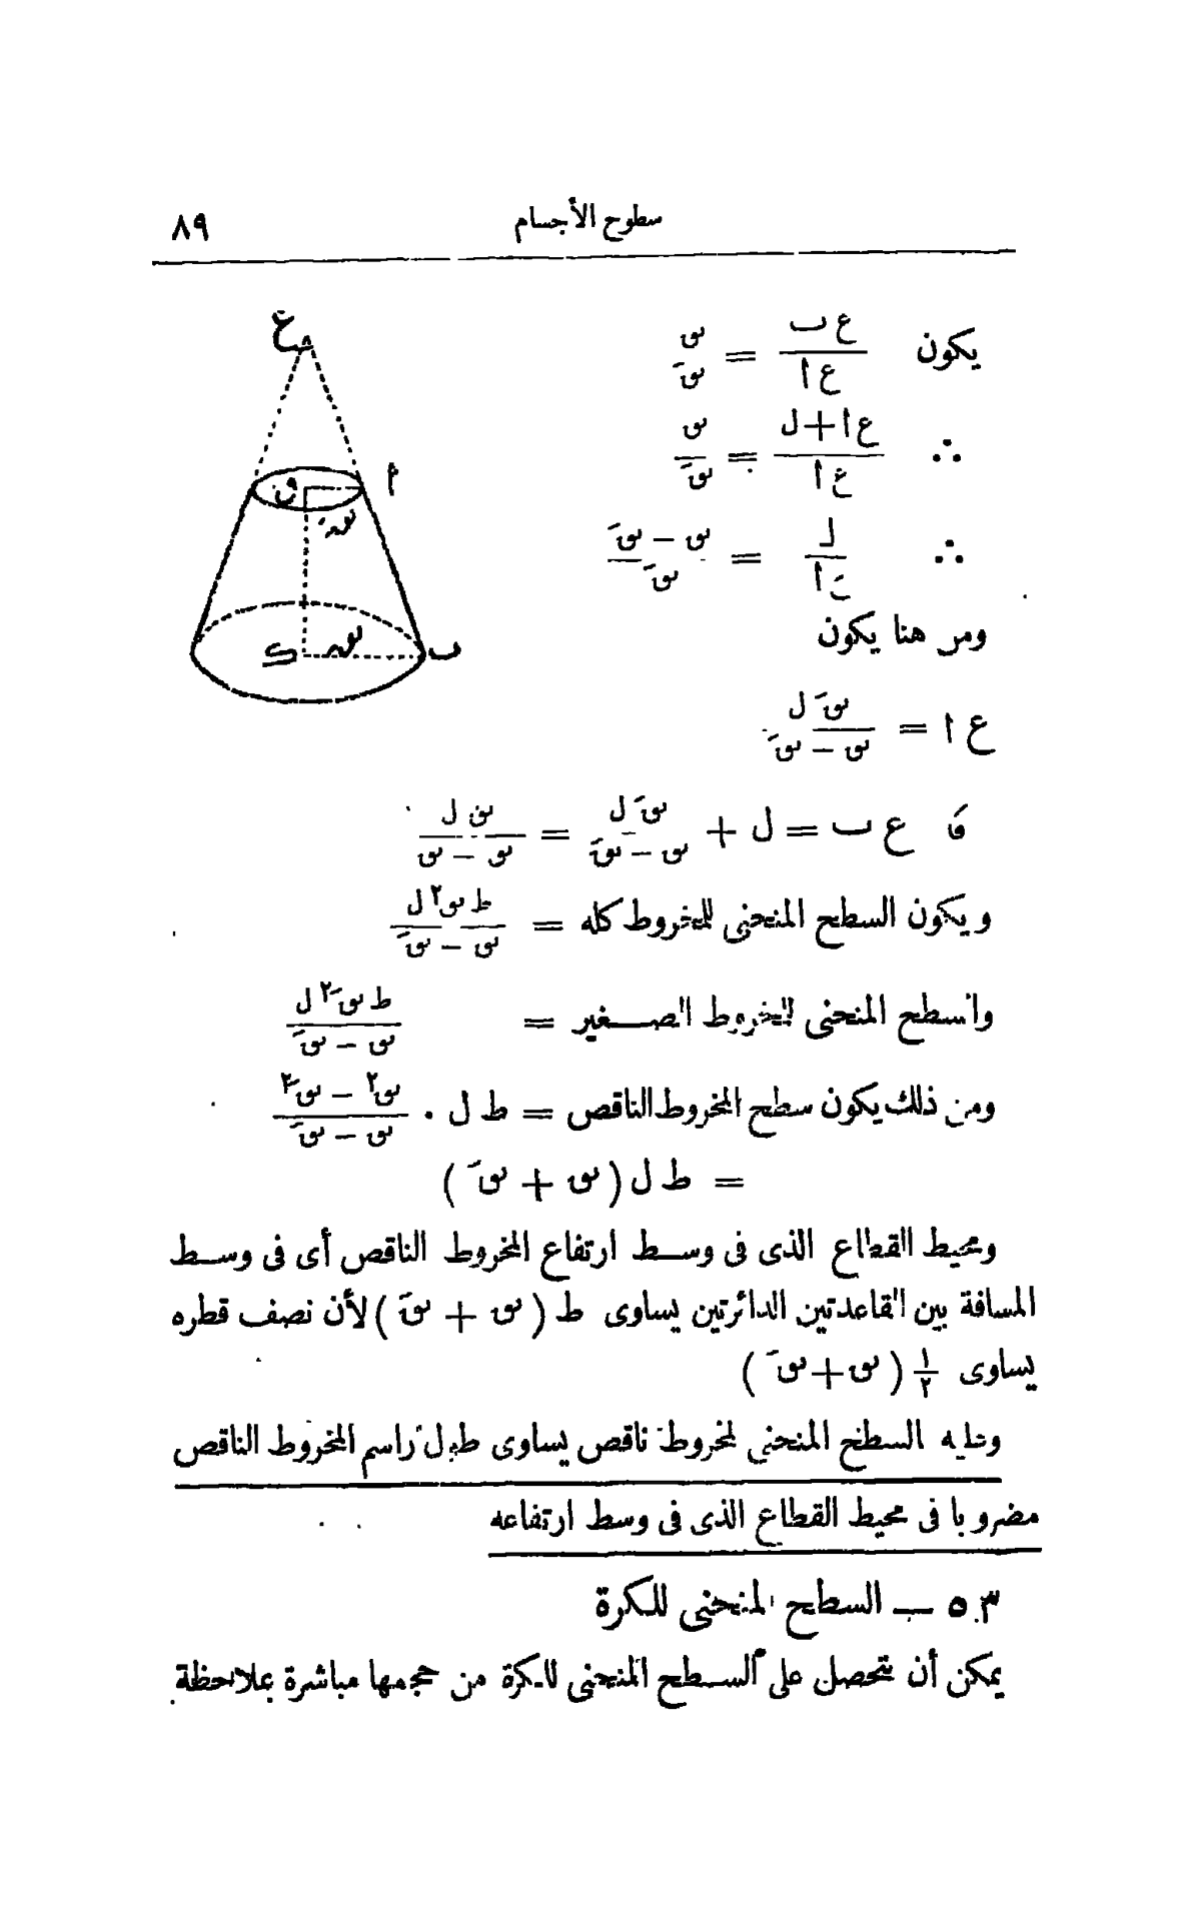 سطوح الأجسام ٨٩
يكون ع ب / ع ا = نق / نقَ
∴ (ع ا + ل) / ع ا = نق / نقَ
∴ ل / ع ا = (نق − نقَ) / نقَ
ومن هنا يكون
ع ا = نقَ ل / (نق − نقَ)
ع ب = ل + نقَ ل / (نق − نقَ) = نق ل / (نق − نقَ)
ويكون السطح المنحنى للمخروط كله = ط نق٢ ل / (نق − نقَ)
والسطح المنحنى للمخروط الصغير = ط نقَ٢ ل / (نق − نقَ)
ومن ذلك يكون سطح المخروط الناقص = ط ل . (نق٢ − نقَ٢) / (نق − نقَ)
= ط ل (نق + نقَ)
ومحيط القطاع الذى فى وسط ارتفاع المخروط الناقص أى فى وسط
المسافة بين القاعدتين الدائرتين يساوى ط (نق + نقَ) لأن نصف قطره
يساوى ١/٢ (نق + نقَ)
وعليه السطح المنحنى لمخروط ناقص يساوى طول راسم المخروط الناقص
مضروبا فى محيط القطاع الذى فى وسط ارتفاعه
٥٣ — السطح المنحنى للكرة
يمكن أن نتحصل على السطح المنحنى للكرة من حجمها مباشرة بملاحظة
ع
ا
نقَ
نق
ب